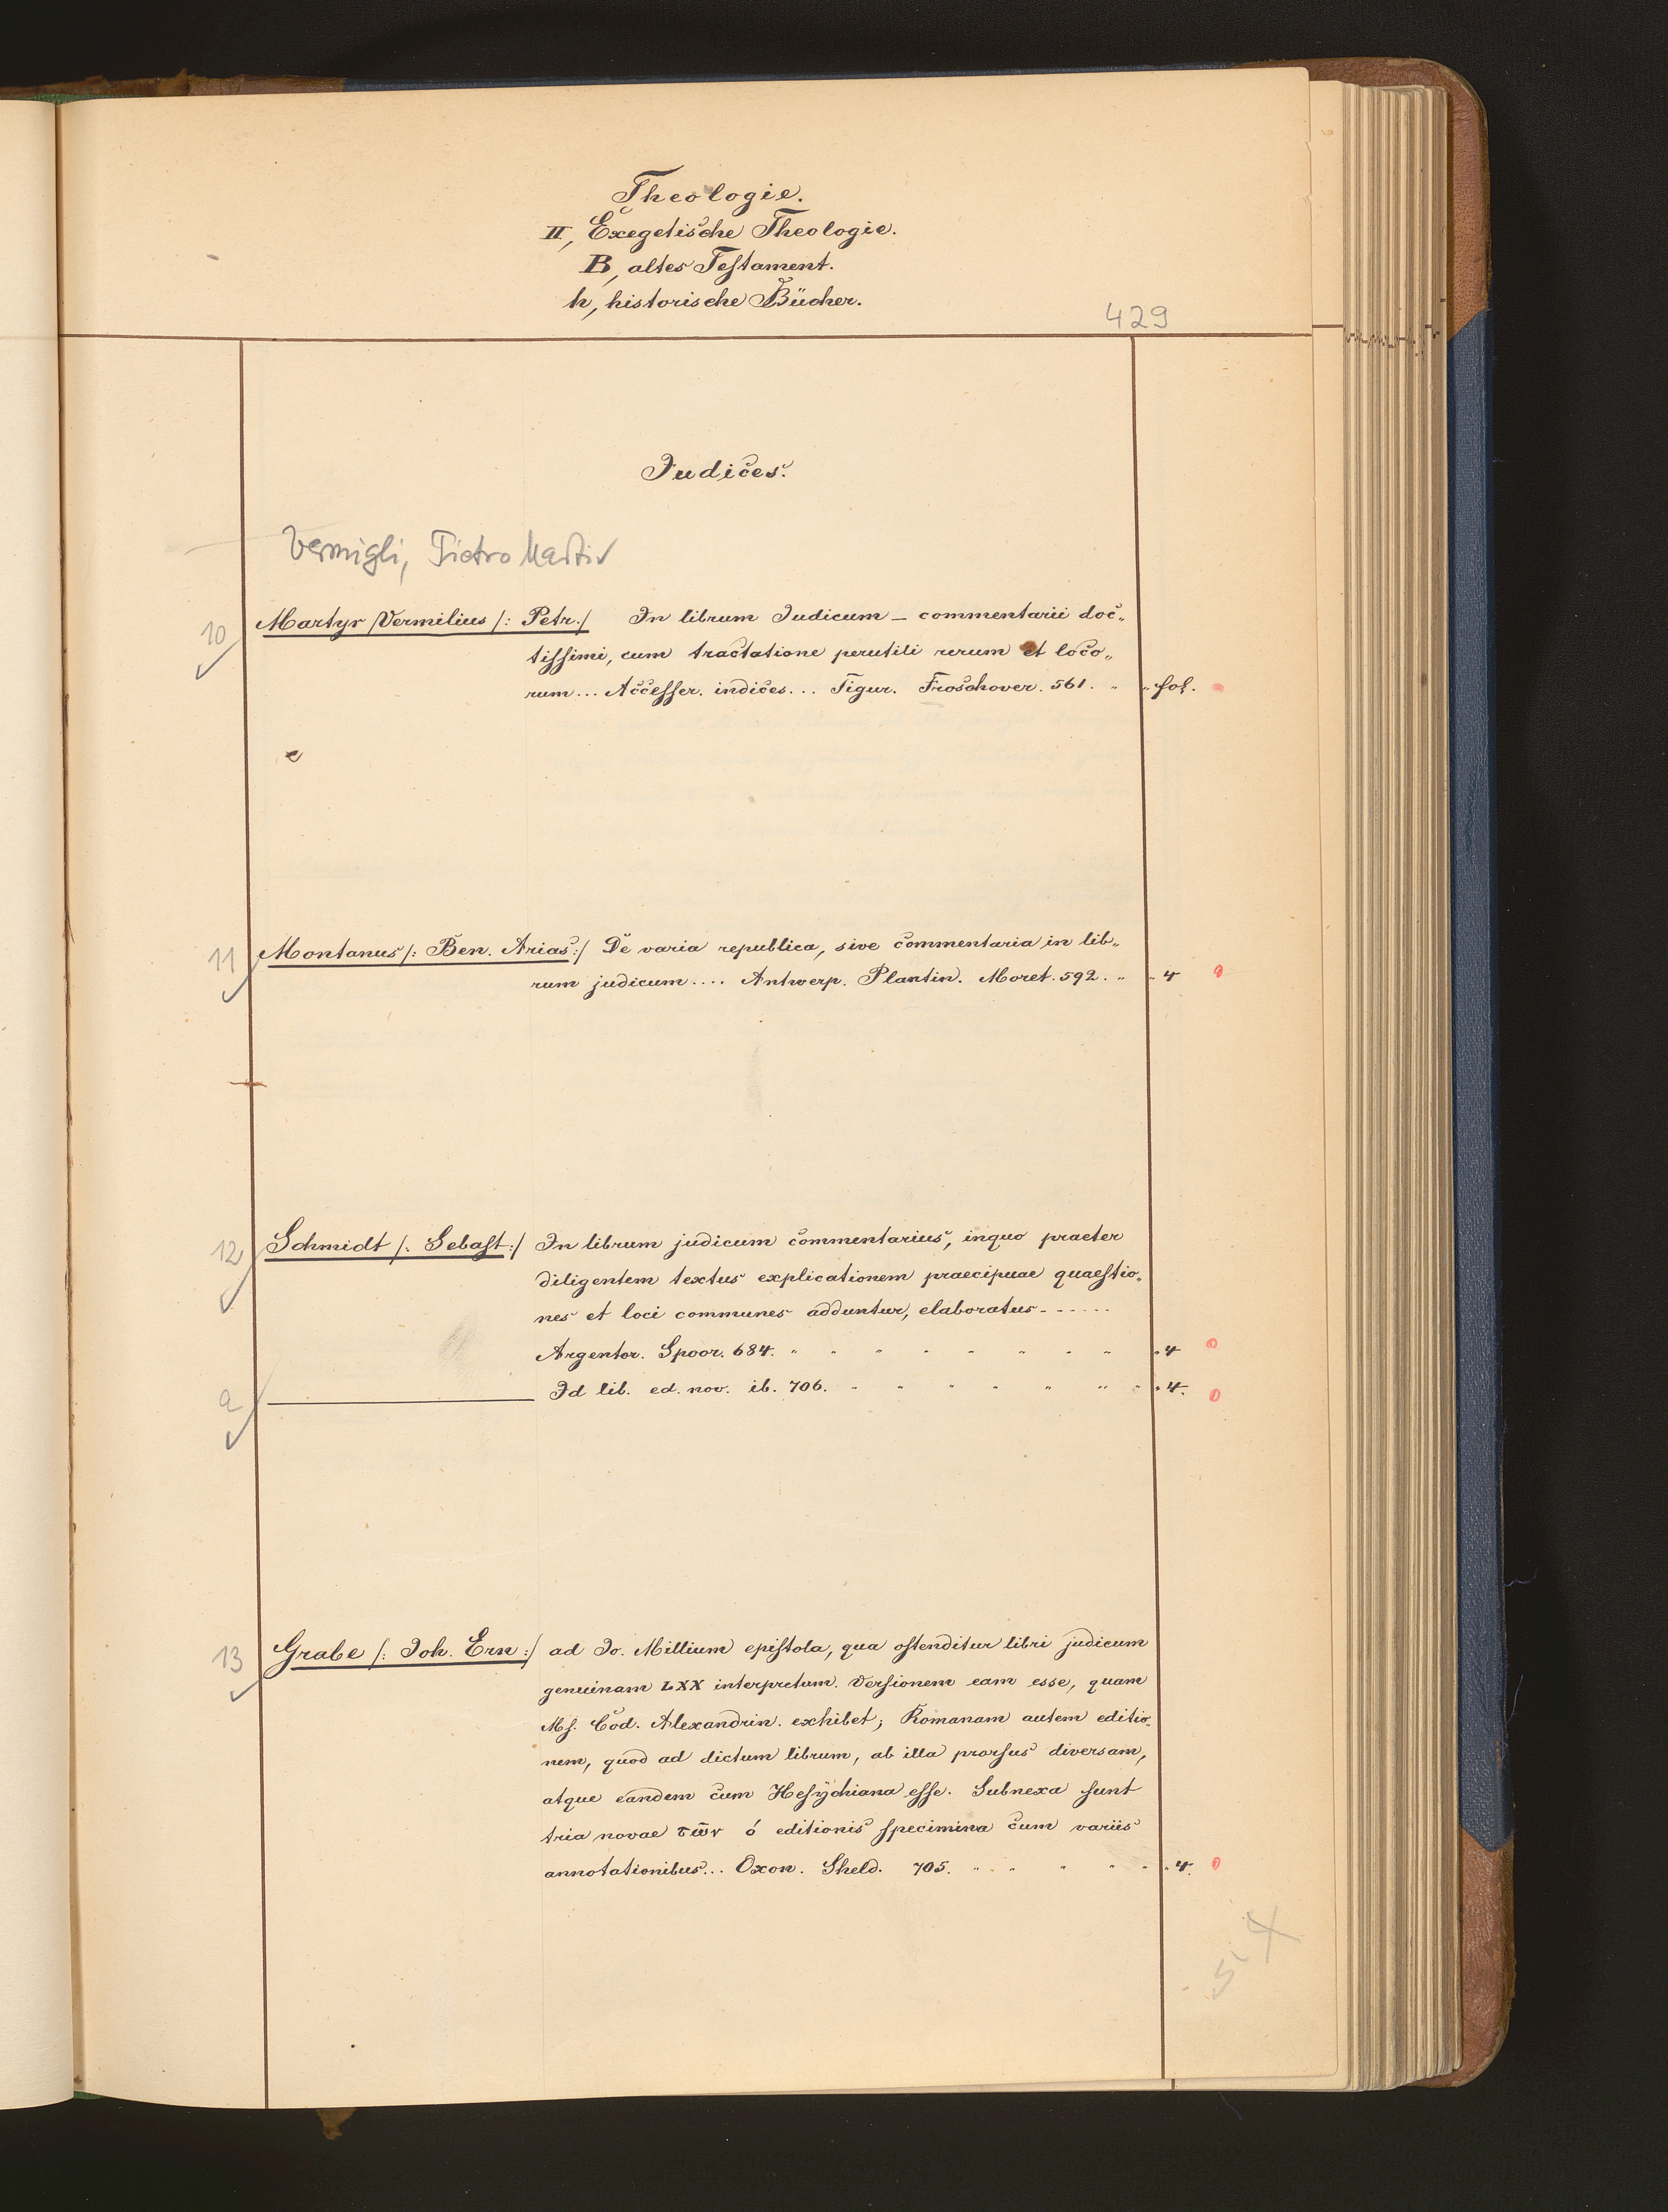 Theologie.
II, Exegetische Theologie.
B, altes Testament.
h, historische Bücher.
429
Judices.
Vermigli, Pietro Martir
10 Martyr Vermilius /: Petr. / In librum Judicum – commentarii doc„
tissimi, cum tractatione perutili rerum et loco„
rum... Accesser. indices... Tigur. Froschover. 561. " " fol.
11 Montanus /: Ben. Arias :/ De varia republica, sive commentaria in lib„
rum judicum.... Antwerp. Plantin. Moret. 592. " " 4
12 Schmidt /: Sebast :/ In librum judicum commentarius, inquo praeter
diligentem textus explicationem praecipuae quaestio„
nes et loci communes adduntur, elaboratus - - - - - -
Argentor. Spoor. 684. " " " " " " " " " 4
a ——— Id lib. ed. nov. ib. 706. " " " " " " " " 4.
13 Grabe /: Joh. Ern :/ ad Jo. Millium epistola, qua ostenditur libri judicum
genuinam LXX interpretum. Versionem eam esse, quam
Ms. Cod. Alexandrin. exhibet; Romanam autem editio„
nem, quod ad dictum librum, ab illa prorsus diversam,
atque eandem cum Hesychiana esse. Subnexa sunt
tria novae τῶν ό editionis specimina cum variis
annotationibus... Oxon. Sheld. 705. " " " " " " 4.